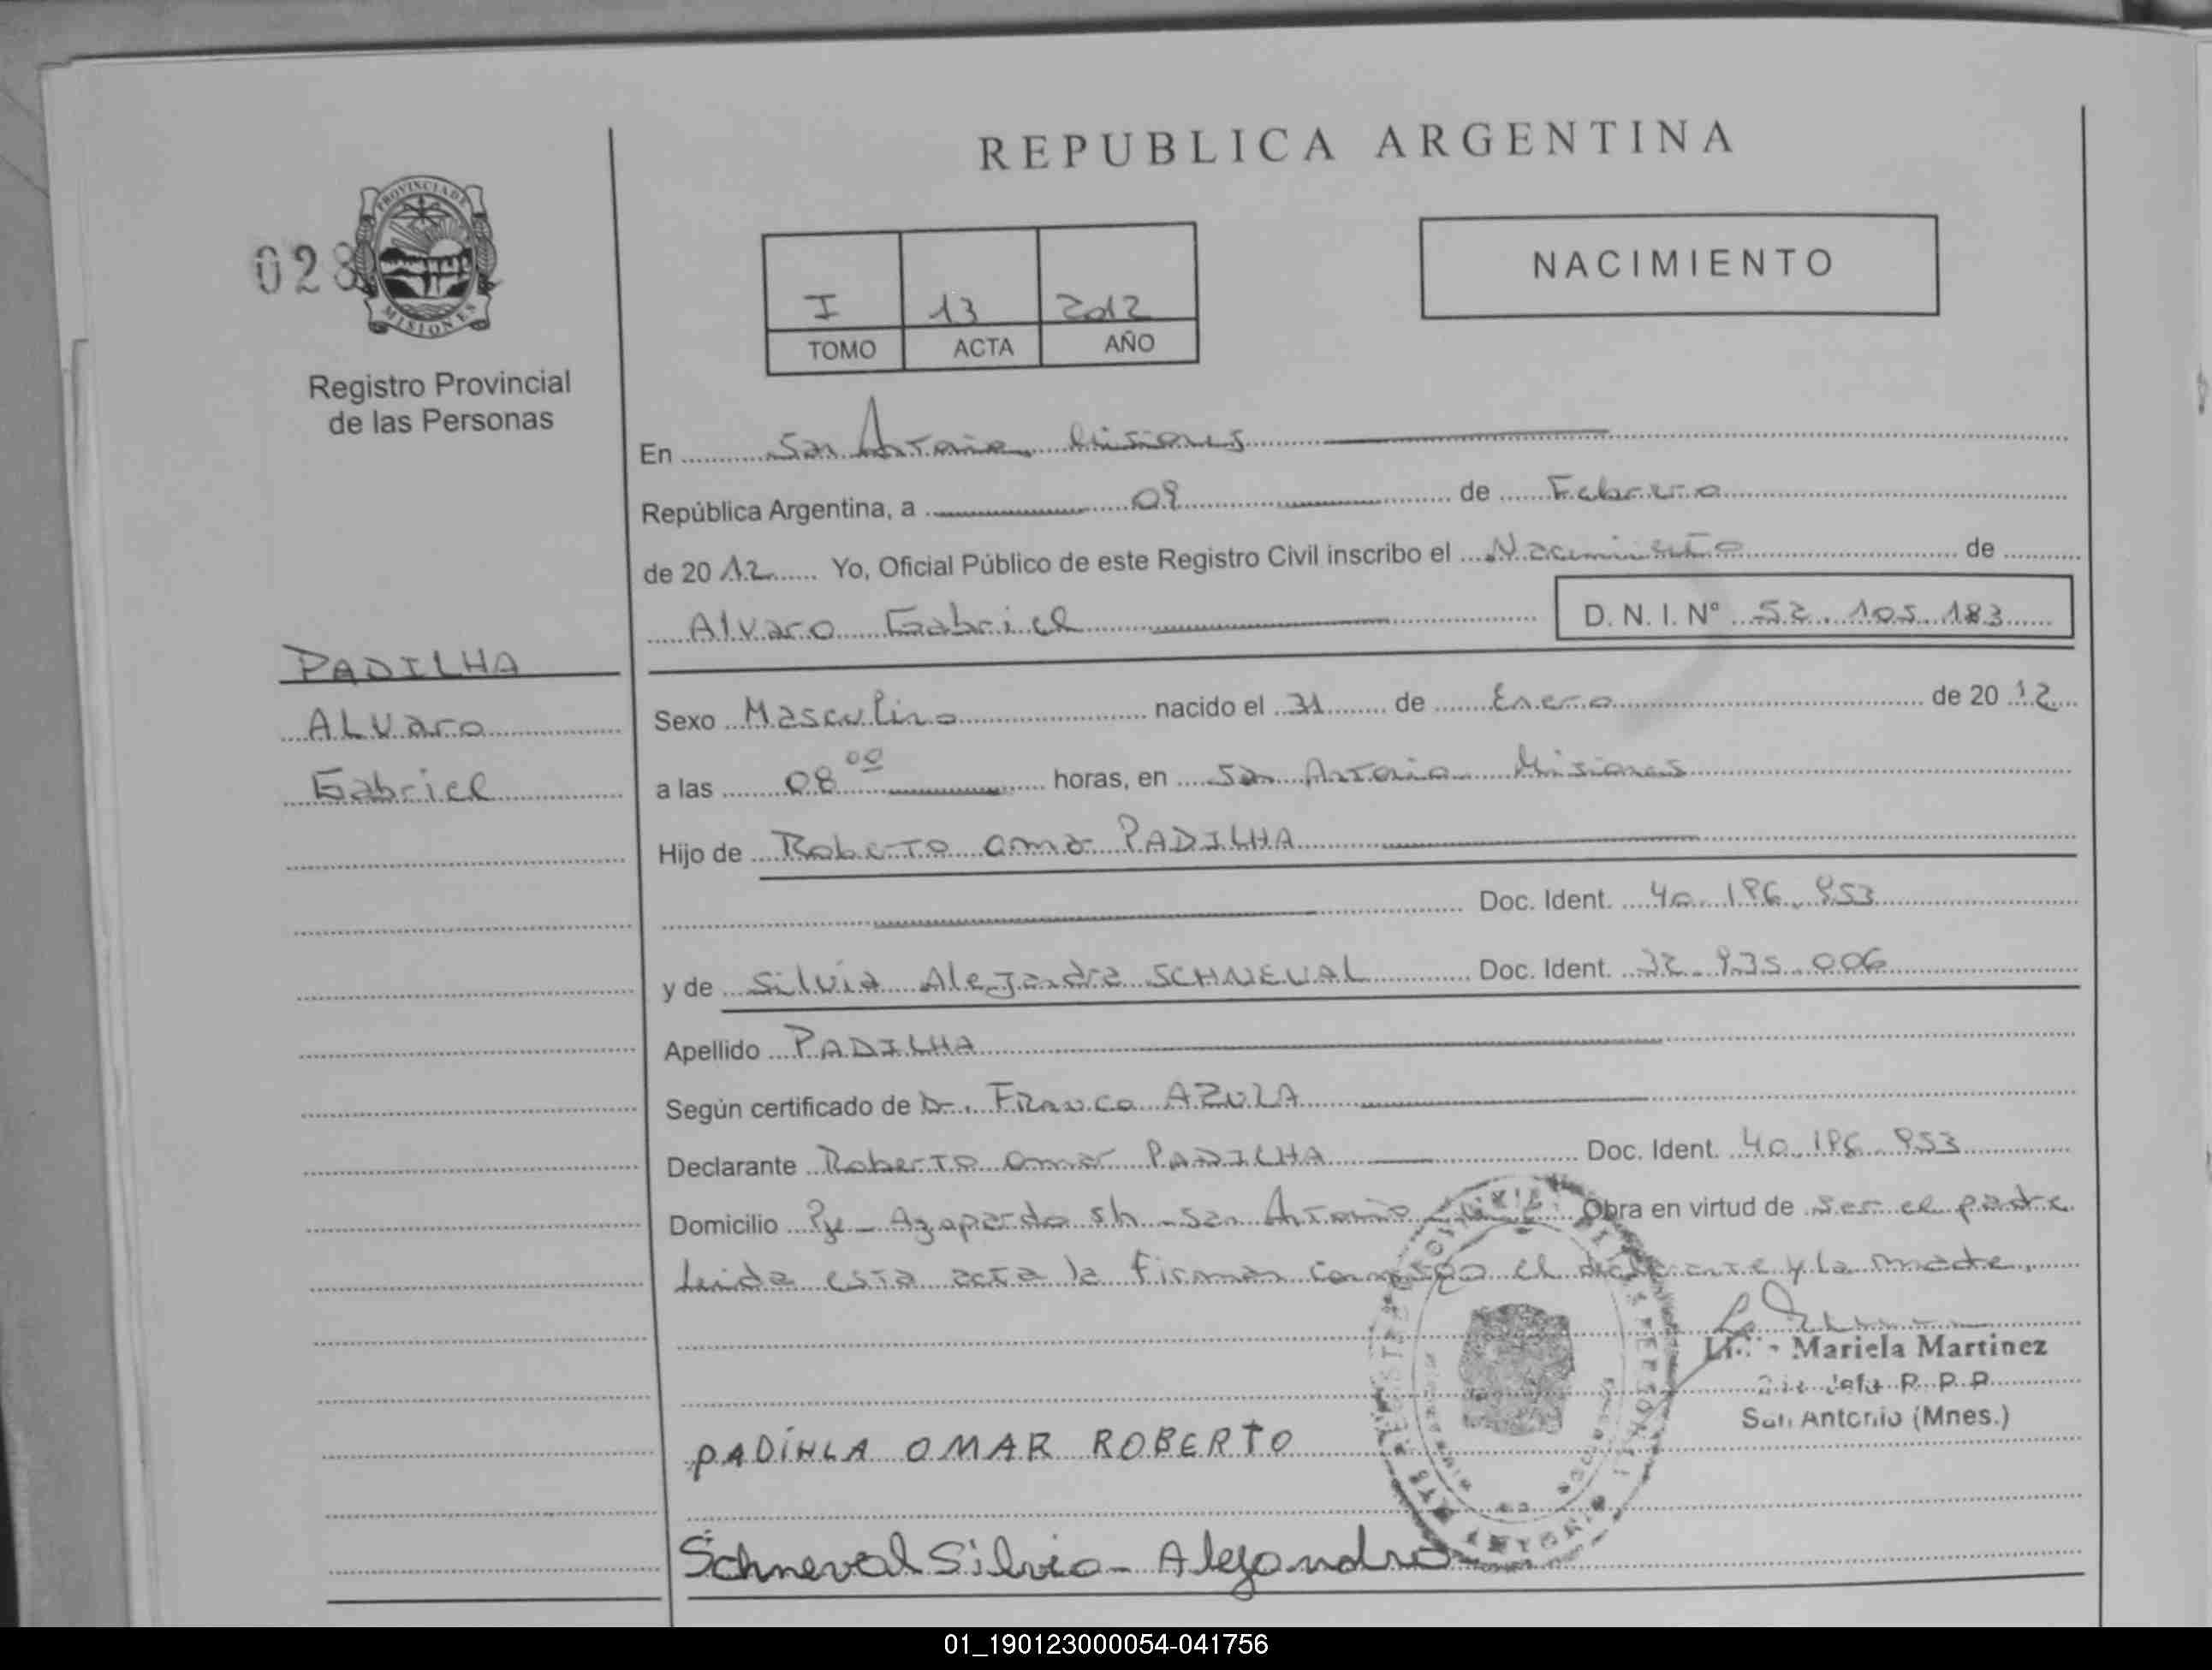 REPUBLICA ARGENTINA
PROVINCIA DE
MISIONES
028
Registro Provincial
de las Personas
I 13 2012
TOMO ACTA AÑO
NACIMIENTO
En San Antonio Misiones
República Argentina, a 09 de Febrero
de 2012 Yo, Oficial Público de este Registro Civil inscribo el Nacimiento de
Alvaro Gabriel D. N. I. Nº 52.105.183
PADILHA
ALVaro
Gabriel
Sexo Masculino nacido el 31 de Enero de 2012
a las 08 00 horas, en San Antonio Misiones
Hijo de Roberto Omar PADILHA
Doc. Ident. 40.196.953
y de Silvia Alejandra SCHNEVAL Doc. Ident. 32.935.006
Apellido PADILHA
Según certificado de Dr. Franco AZULA
Declarante Roberto Omar PADILHA Doc. Ident. 40.196.953
Domicilio Pje - Azopardo s/n - San Antonio Obra en virtud de ser el padre
Leida esta acta la firman conmigo el declarante y la madre.
Mariela Martinez
R. P. P.
San Antonio (Mnes.)
PADÍHLA OMAR ROBERTO
Schneval Silvia - Alejandra
01_190123000054-041756